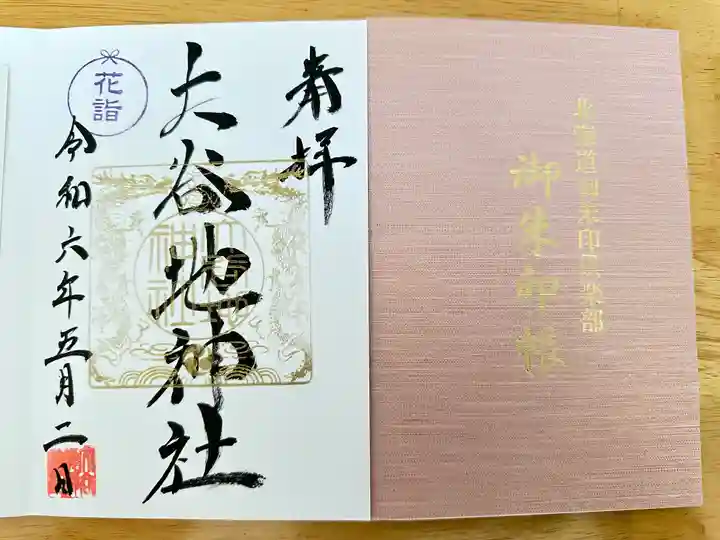 北海道御朱印倶楽部
御朱印帳
奉拝
大谷地神社
花詣
令和六年五月二日